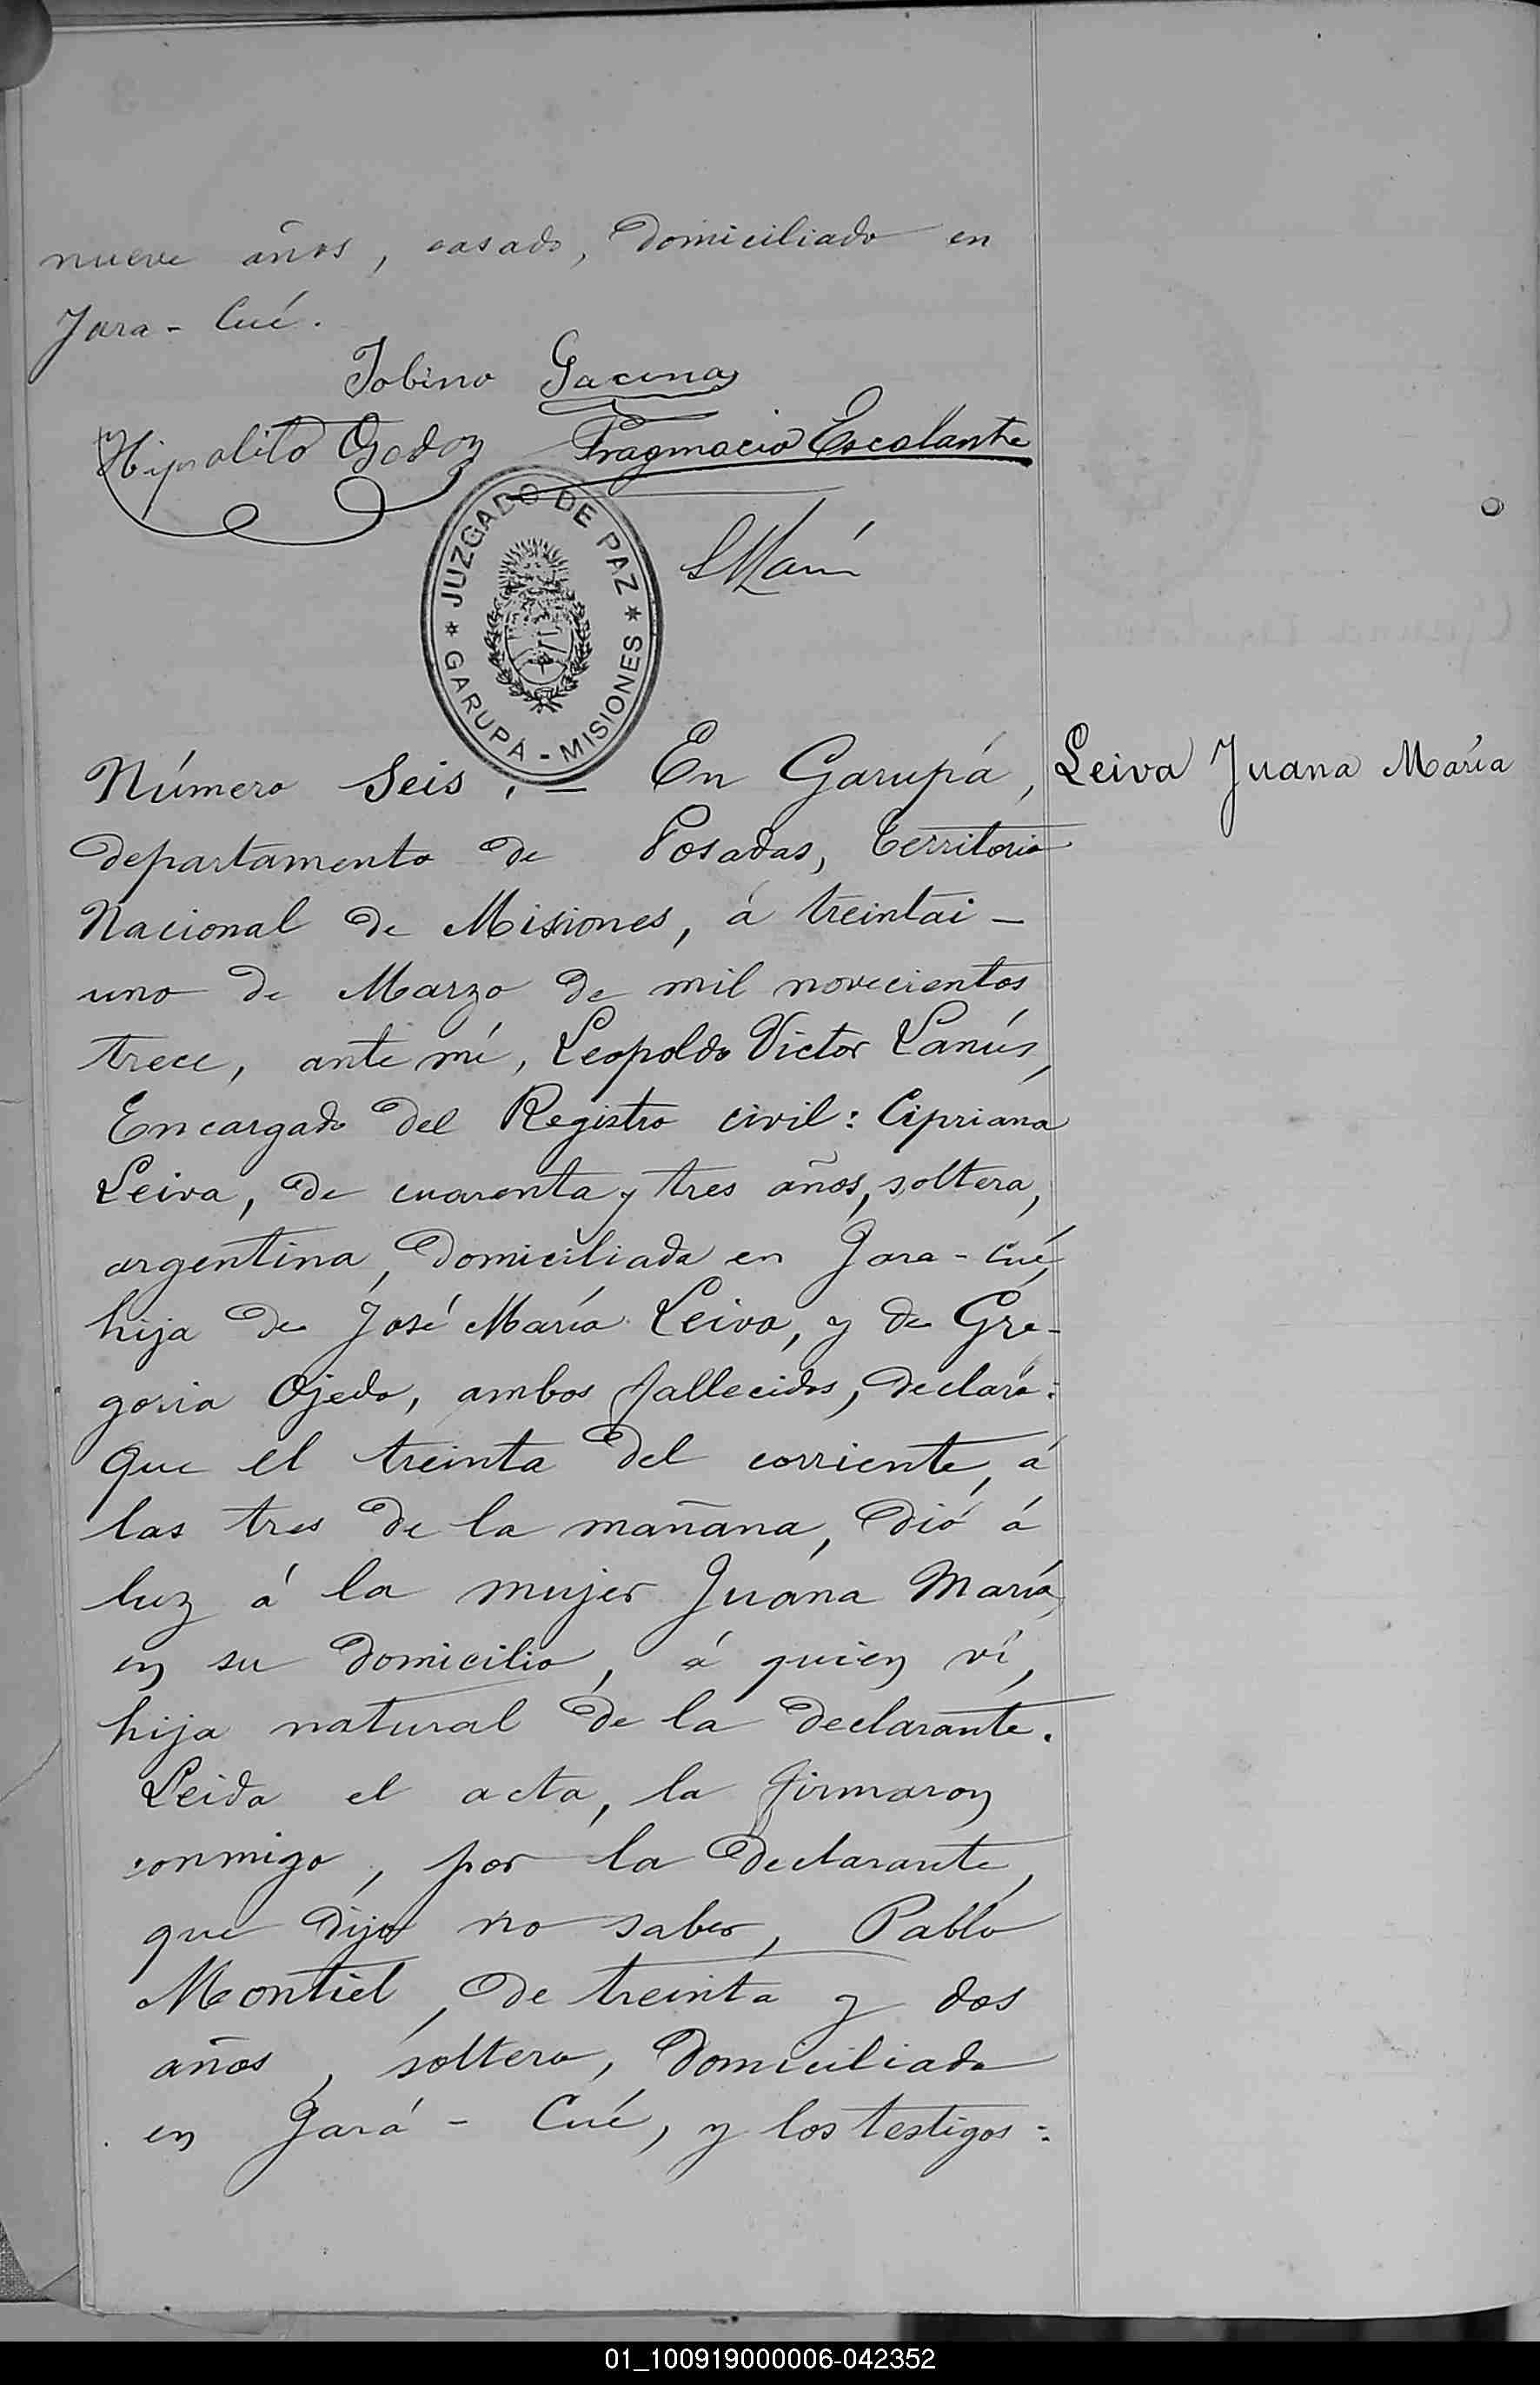 nueve años, casado, domiciliado en
Jara-Cué.
Tobino Gacena
Hipolito Godoy Pragmacio Escalante
JUZGADO DE PAZ
GARUPÁ - MISIONES
Número Seis.— En Garupá,
Leiva Juana María
departamento de Posadas, territorio
Nacional de Misiones, á treintai-
uno de Marzo de mil novecientos
trece, ante mí, Leopoldo Victor Lanús,
Encargado del Registro civil: Cipriana
Leiva, de cuarenta y tres años, soltera,
argentina, domiciliada en Jara-Cué,
hija de José María Leiva, y de Gre-
goria Ojeda, ambos fallecidos, declaró:
Que el treinta del corriente, á
las tres de la mañana, dió á
luz á la mujer Juana María,
en su domicilio, á quien ví,
hija natural de la declarante.
Leida el acta, la firmaron
conmigo, por la declarante,
que dijo no saber, Pablo
Montiel, de treinta y dos
años, soltero, domiciliado
en Jará-Cué, y los testigos:
01_100919000006-042352